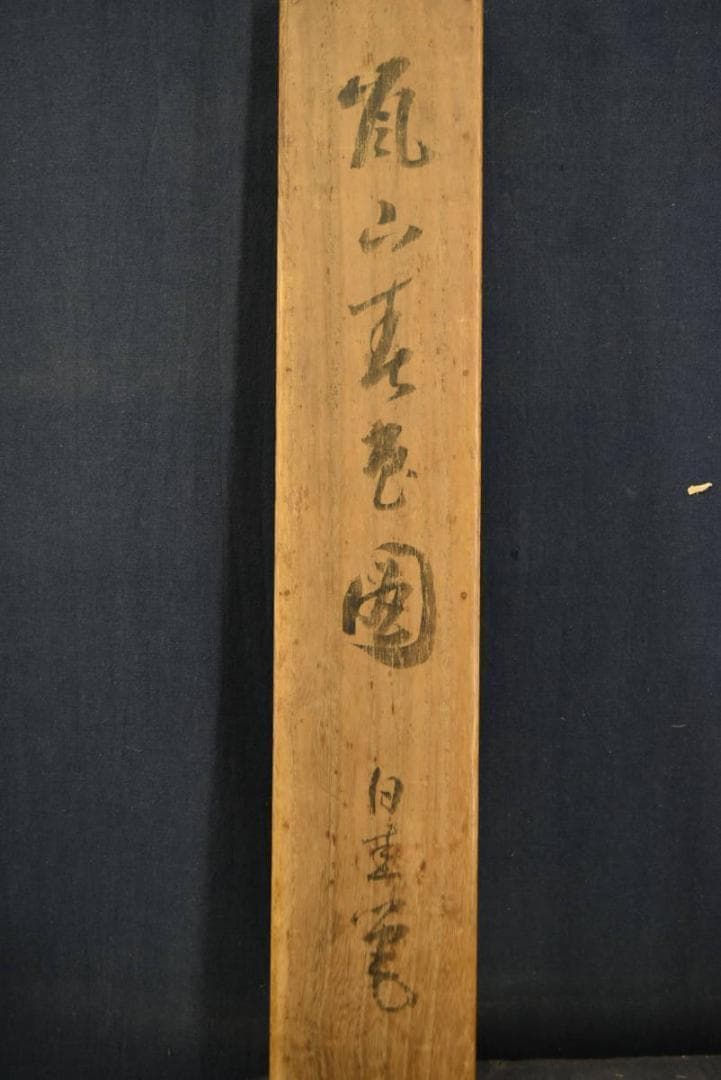 嵐山春色圖
白圭